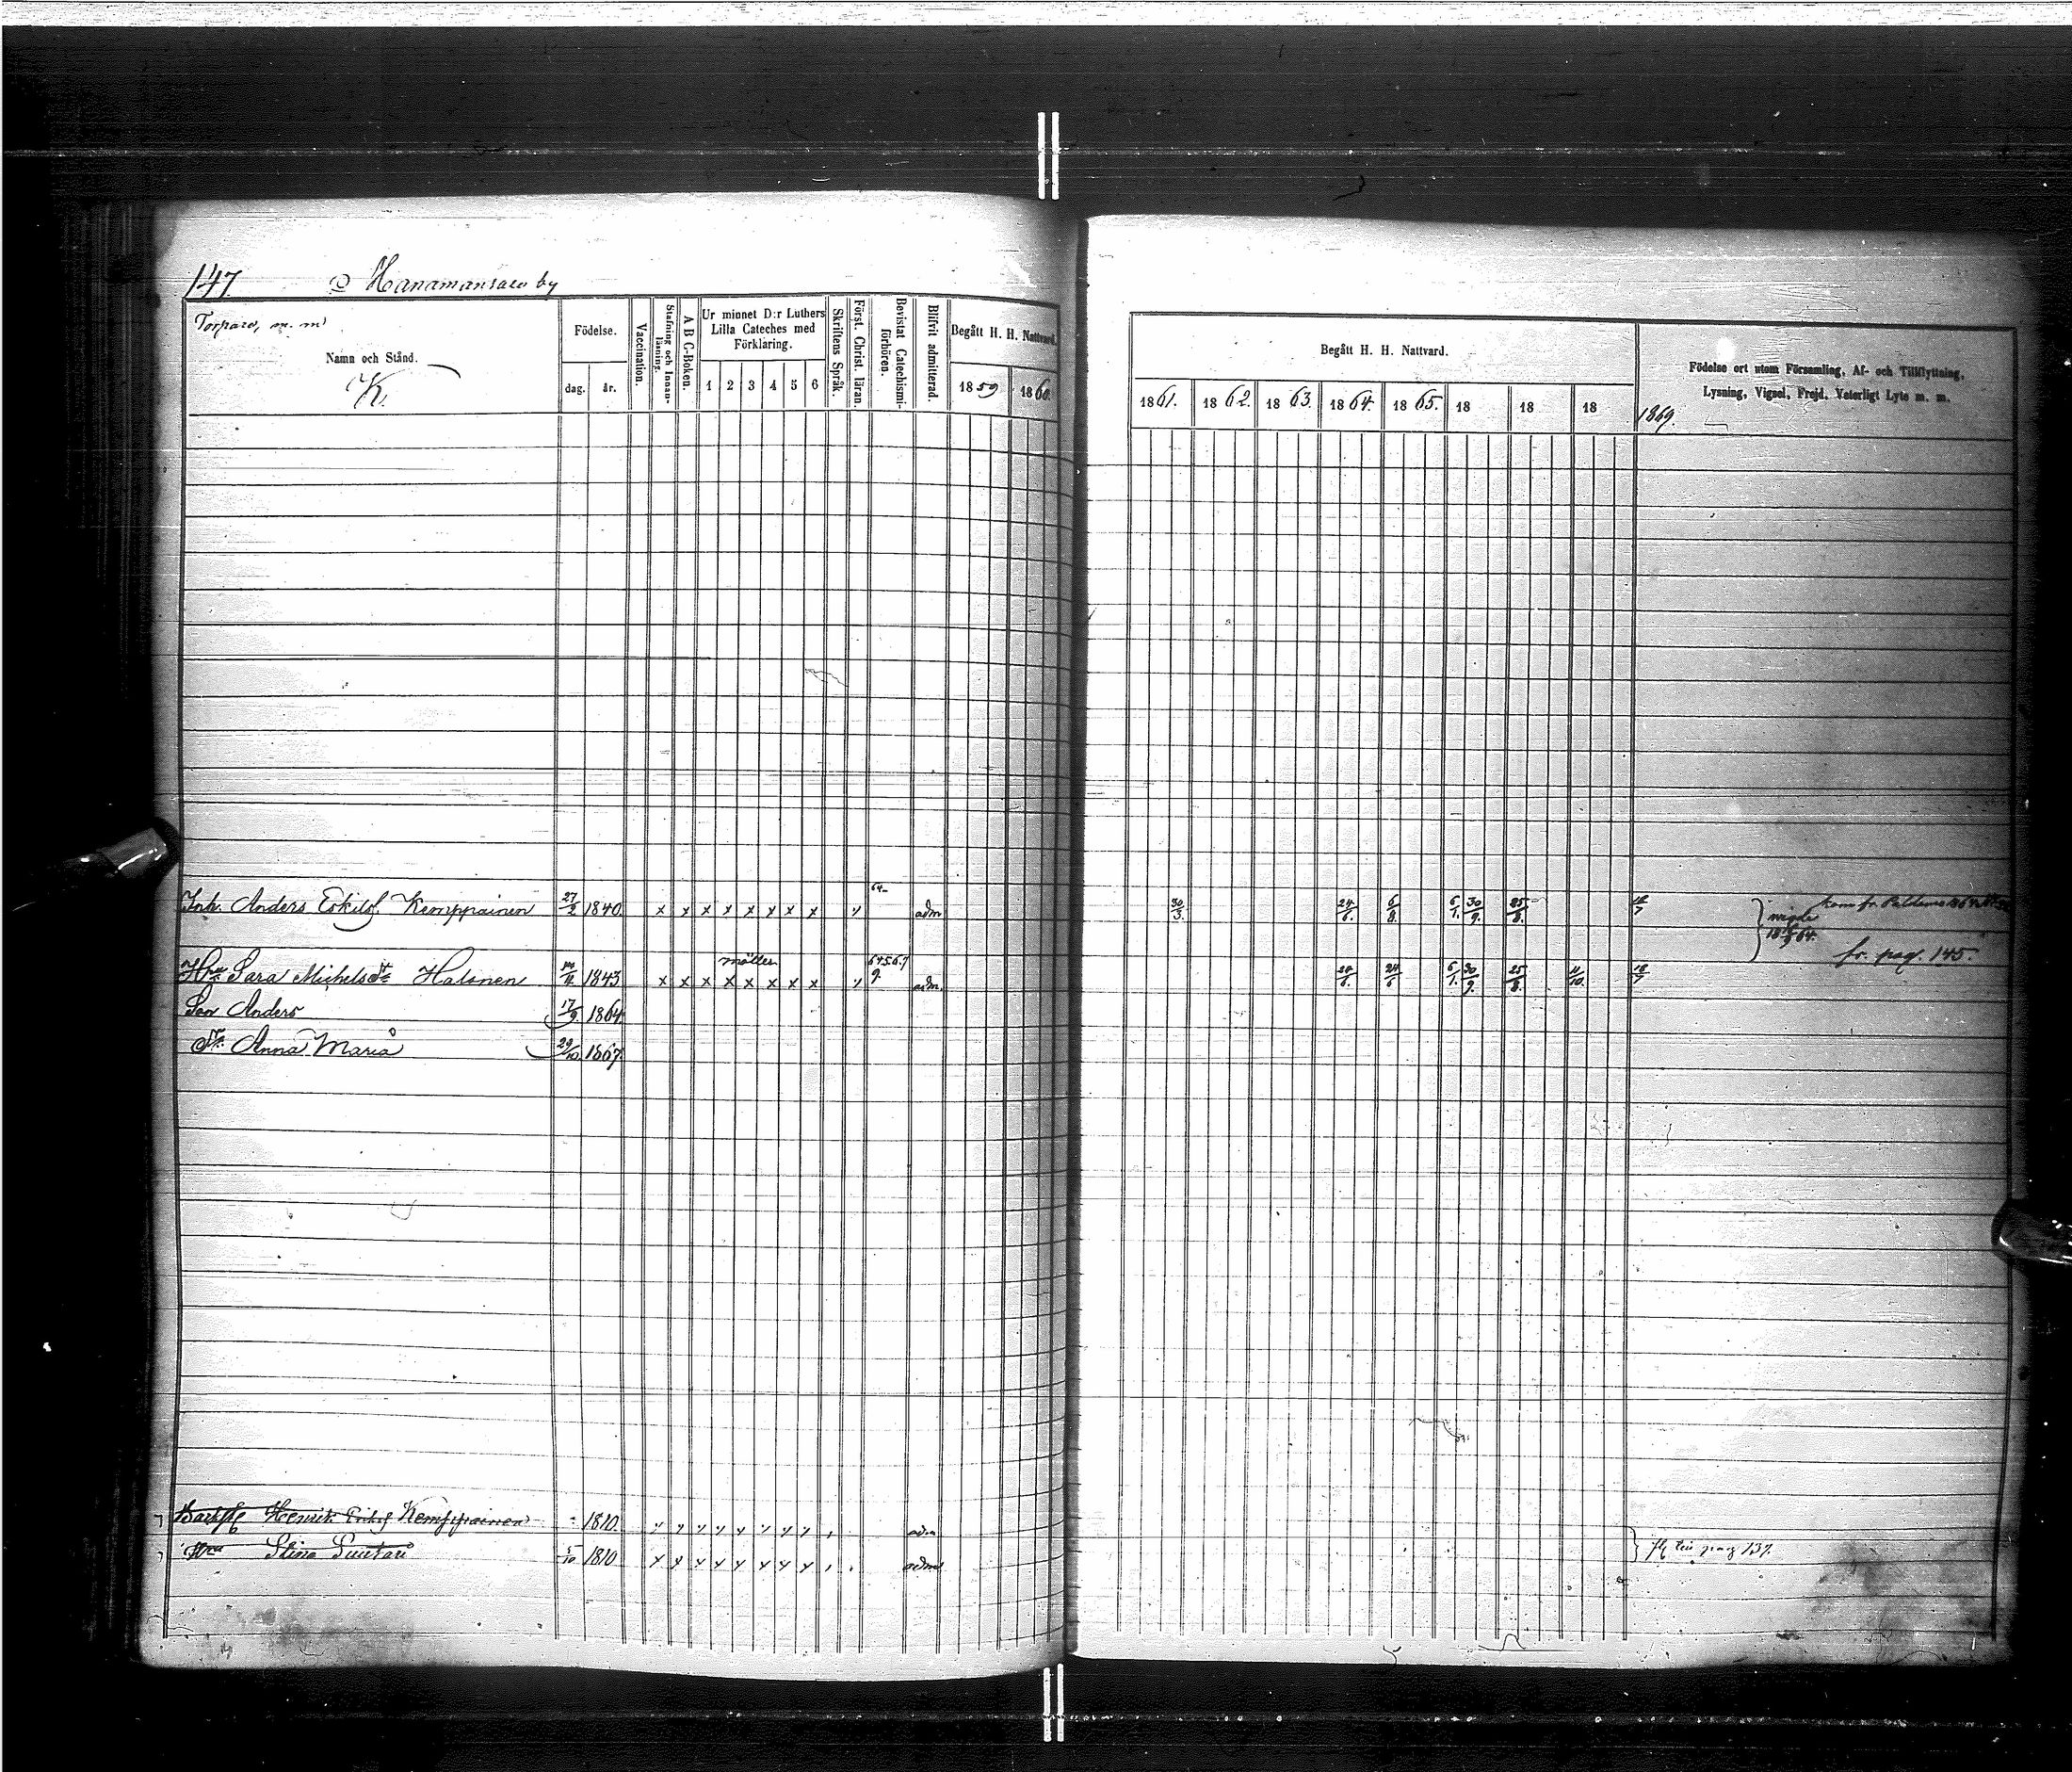 147
Manamansalo by
Torpare, m. m.
Namn och Stånd.
K.
Födelse.
dag.
år.
Vaccination.
Stafning och Innan-läsning.
A B C-Boken.
Ur minnet D:r Luthers
Lilla Cateches med
Förklaring.
1 2 3 4 5 6
Skriftens Språk.
Först. Christ. läran.
Bevistat Catechismi-förhören.
Blifvit admitterad.
Begått H. H. Nattvard.
1859 1860.
Begått H. H. Nattvard.
1861. 1862. 1863. 1864. 1865. 18 18 18
1869.
Födelse ort utom Församling, Af- och Tillflyttning,
Lysning, Vigsel, Frejd, Veterligt Lyte m. m.
Inh. Anders Eskilsf. Kemppainen 27/2 1840. x x x x x x x x 64 adm 30/3. 24/6. 6/8. 6/1. 30/9. 25/8. kom fr. Paldamo
vigde
64.
fr. pag. 145.
möller
Hu Sara Michelsdr Halonen 1843 x x x x x x x x 64.5.6.7 9. adm. 24/6 6/1. 30/9. 25/8. 11/10.
Son Anders 17/9. 1864.
Dr. Anna Maria 29/10 1867.
Henrik Kemppainen 1810. adm
Hu Stina 5/10 1810 adm
till pag 137.